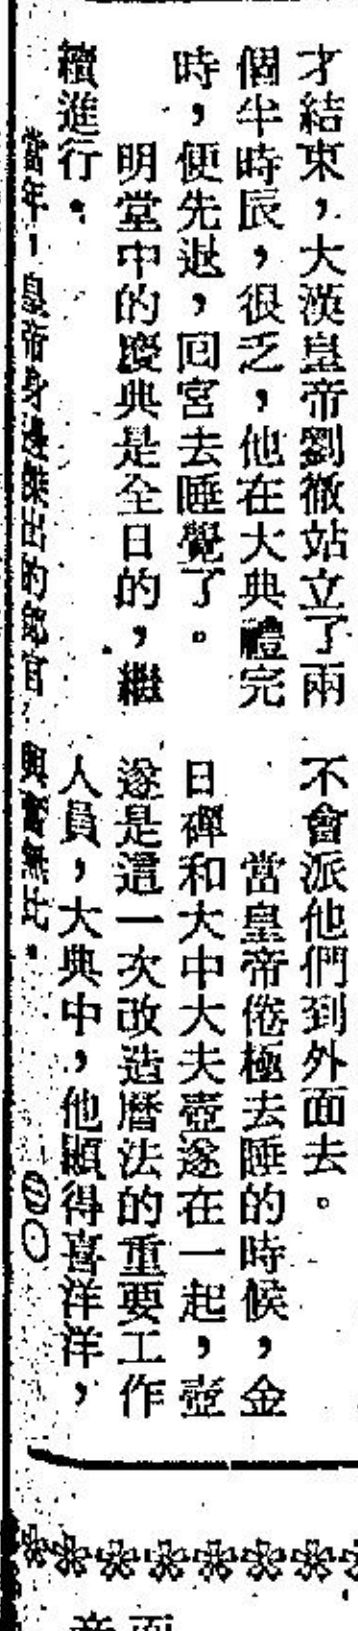 才結束,大漢皇帝劉徹站立了兩
個半時辰,很乏,他在大典禮完
時,便先退,回宮去睡覺了。
明堂中的慶典是全日的,繼
續進行。
當年,皇帝身邊傑出的郎官
不會派他們到外面去。
當皇帝倦極去睡的時候,金
日磾和大中大夫壺遂在一起,壺
遂是這一次改造曆法的重要工作
人員,大典中,他顯得喜洋洋,
興奮無比。